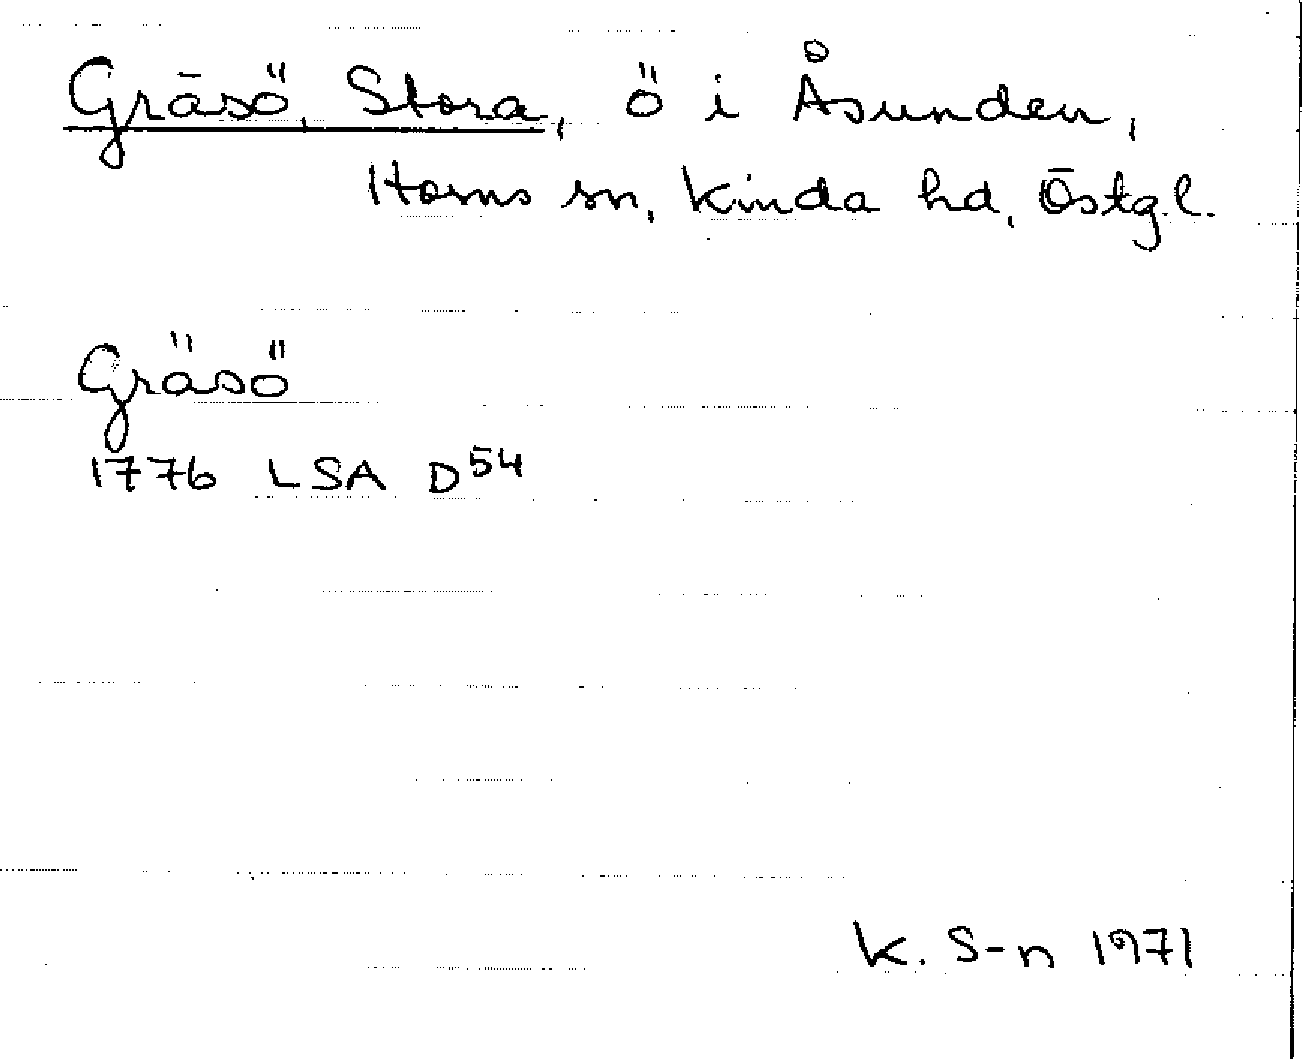 Gräsö, Stora, ö i Åsunden,
Horns sn, Kinda hd, Östg.l.
Gräsö
1776 LSA D54
K. S-n 1971